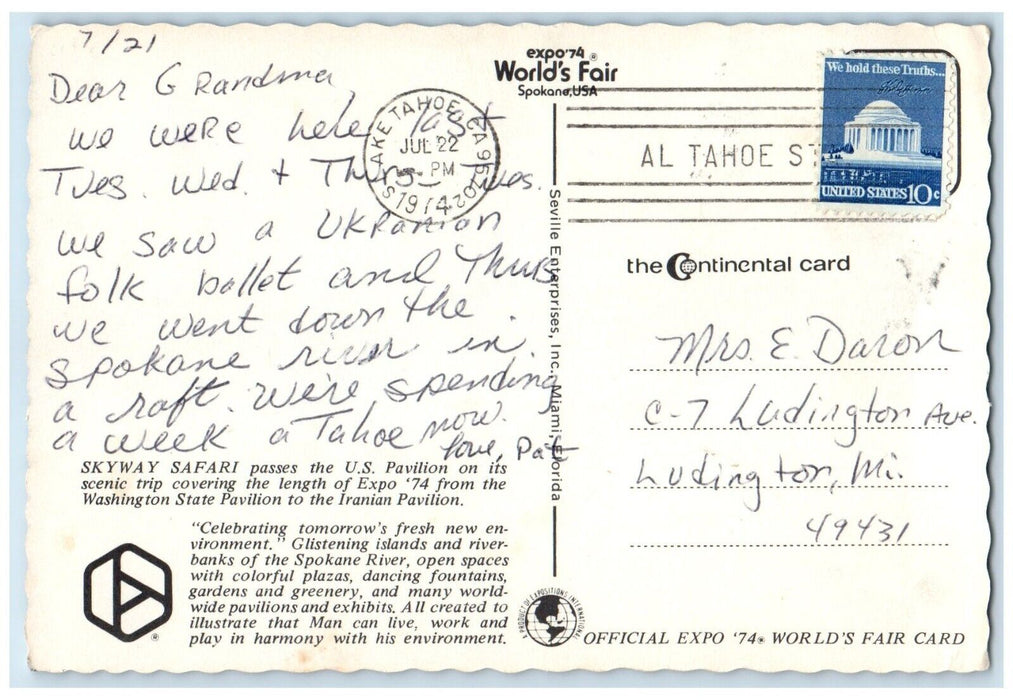 7/21
Dear Grandma,
we were here last
Tues. Wed. + Thurs Tues.
we saw a Ukranian
folk ballet and Thurs
we went down the
Spokane river in
a raft. We're spending
a week a Tahoe now.
love, Pat
SKYWAY SAFARI passes the U.S. Pavilion on its
scenic trip covering the length of Expo '74 from the
Washington State Pavilion to the Iranian Pavilion.
"Celebrating tomorrow's fresh new en-
vironment." Glistening islands and river-
banks of the Spokane River, open spaces
with colorful plazas, dancing fountains,
gardens and greenery, and many world-
wide pavilions and exhibits. All created to
illustrate that Man can live, work and
play in harmony with his environment.
®
expo'74 ®
World's Fair
Spokane, USA
LAKE TAHOE, CA 95702
JUL 22
PM
1974
AL TAHOE ST
We hold these Truths...
UNITED STATES 10c
Seville Enterprises, Inc., Miami, Florida
the Continental card
Mrs. E. Daron
C-7 Ludington Ave.
Ludington, Mi.
49431
A PRODUCT OF EXPOSITIONS INTERNATIONAL
OFFICIAL EXPO '74® WORLD'S FAIR CARD